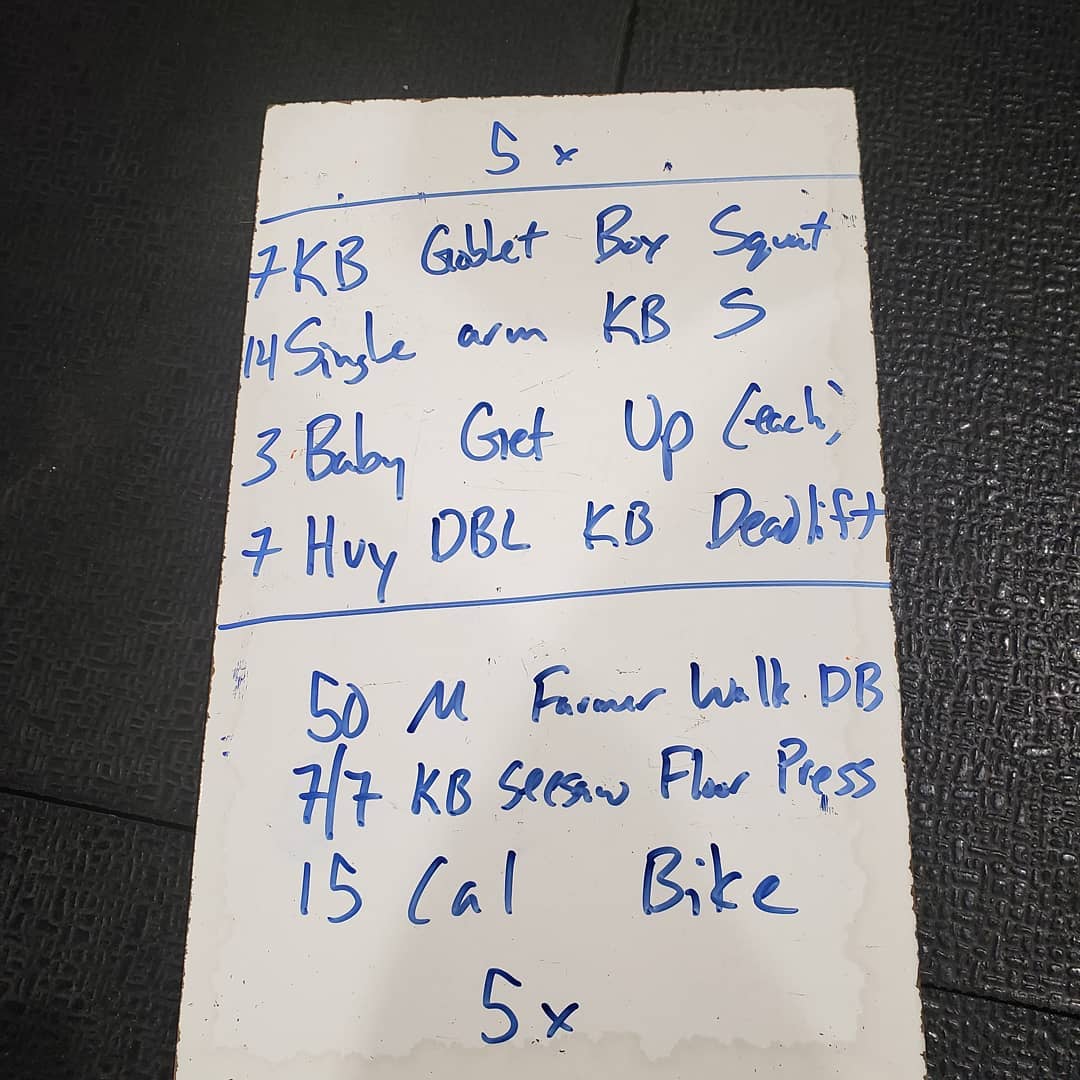 5 x
7 KB Goblet Box Squat
14 Single arm KB S
3 Baby Get Up (each)
7 Hvy DBL KB Deadlift
50 M Farmer Walk DB
7/7 KB Seesaw Floor Press
15 Cal Bike
5 x